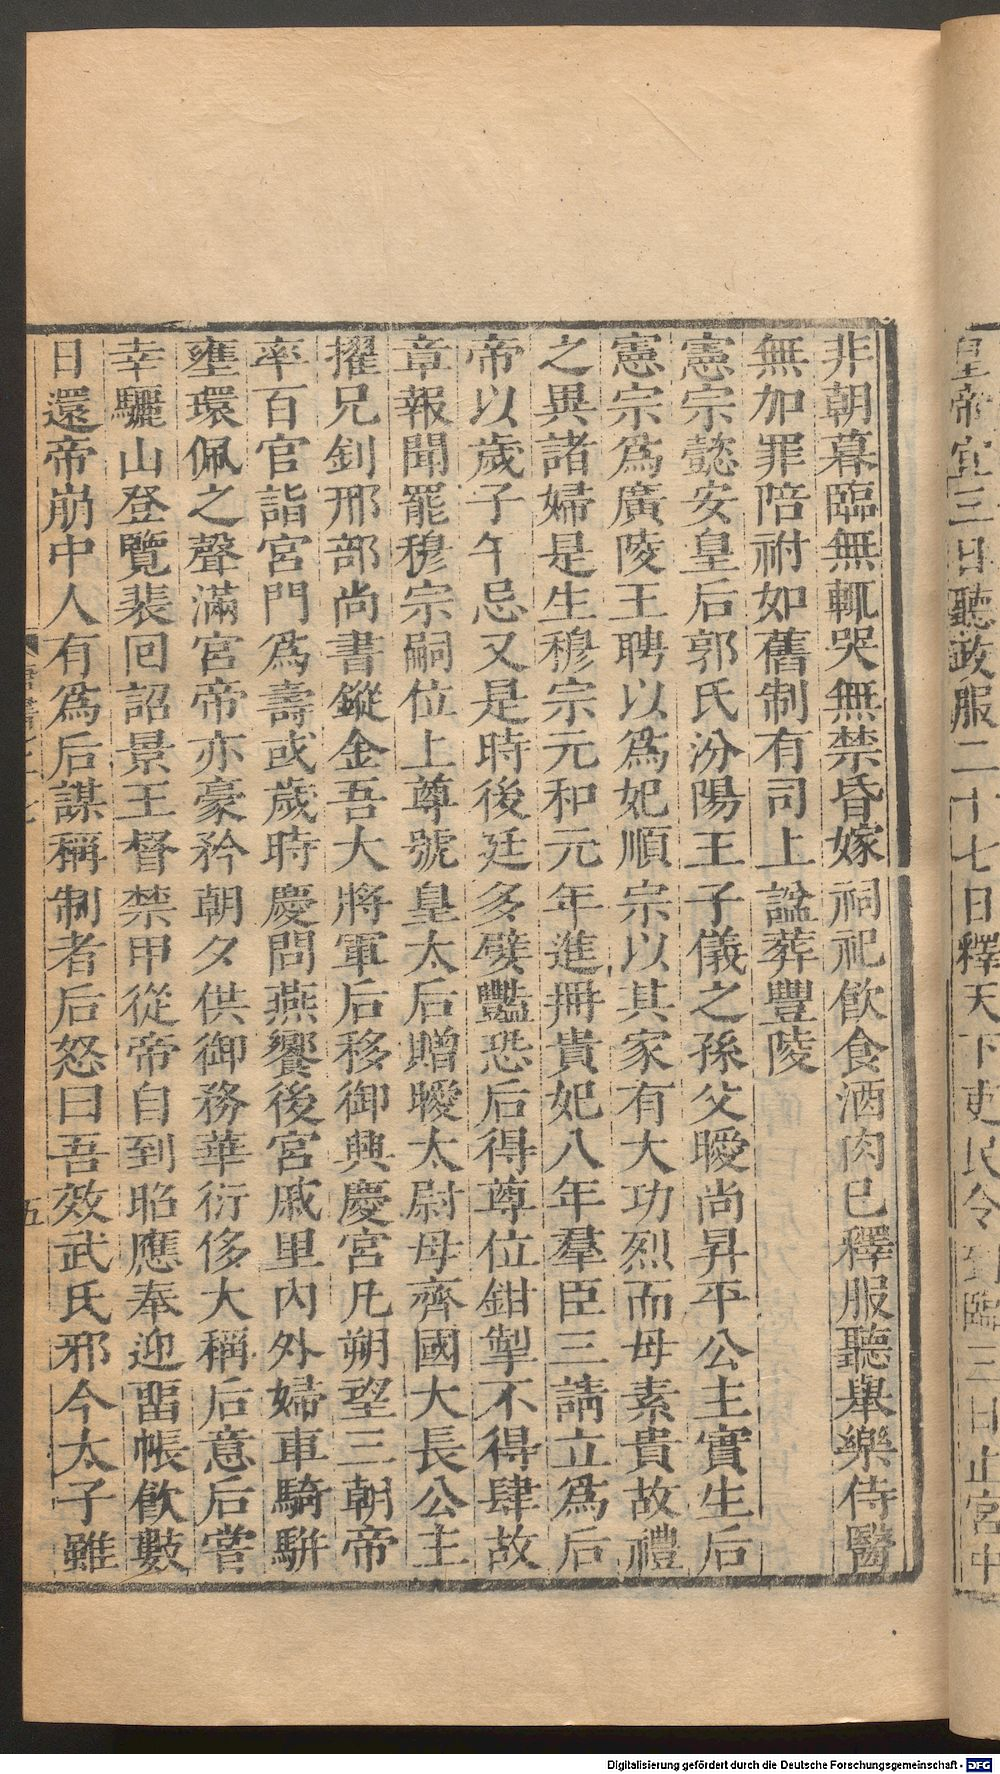 皇帝宜三日聽政服二十七日釋天下吏民令到臨三日止宮中
非朝暮臨無輒哭無禁昏嫁祠祀飮食酒肉已釋服聽舉樂侍醫
無加罪陪祔如舊制有司上諡葬豐陵
憲宗懿安皇后郭氏汾陽王子儀之孫父曖尚昇平公主實生后
憲宗爲廣陵王聘以爲妃順宗以其家有大功烈而母素貴故禮
之異諸婦是生穆宗元和元年進冊貴妃八年羣臣三請立爲后
帝以歲子午忌又是時後廷多嬖豔恐后得尊位鉗掣不得肆故
章報聞罷穆宗嗣位上尊號皇太后贈曖太尉母齊國大長公主
擢兄釗邢部尚書鏦金吾大將軍后移御興慶宮凡朔望三朝帝
率百官詣宮門爲壽或歲時慶問燕饗後宮戚里內外婦車騎駢
壅環佩之聲滿宮帝亦豪矜朝夕供御務華衍侈大稱后意后嘗
幸驪山登覽裴回詔景王督禁甲從帝自到昭應奉迎畱帳飮數
日還帝崩中人有爲后謀稱制者后怒曰吾效武氏邪今太子雖
五
Digitalisierung gefördert durch die Deutsche Forschungsgemeinschaft - DFG